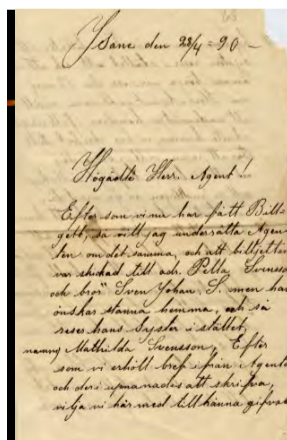 Ysane den 28/4 = 90 –
Högädle Herr. Agent!
Efter som vi nu har fått Bill-
gett, så vill jag undersätta Agen-
ten om det samma, och att billjetten
var skickad till adr. Pella Svensson
och bror" Sven Johan, S. men han
önskar stanna hemma, och så
reser hans Syster i stället,
namng Mathilda Svensson, Efter
som vi erhöll bref i från Agenten
och deri upmanades att skrifva,
vilja vi här med tillkänna gifva